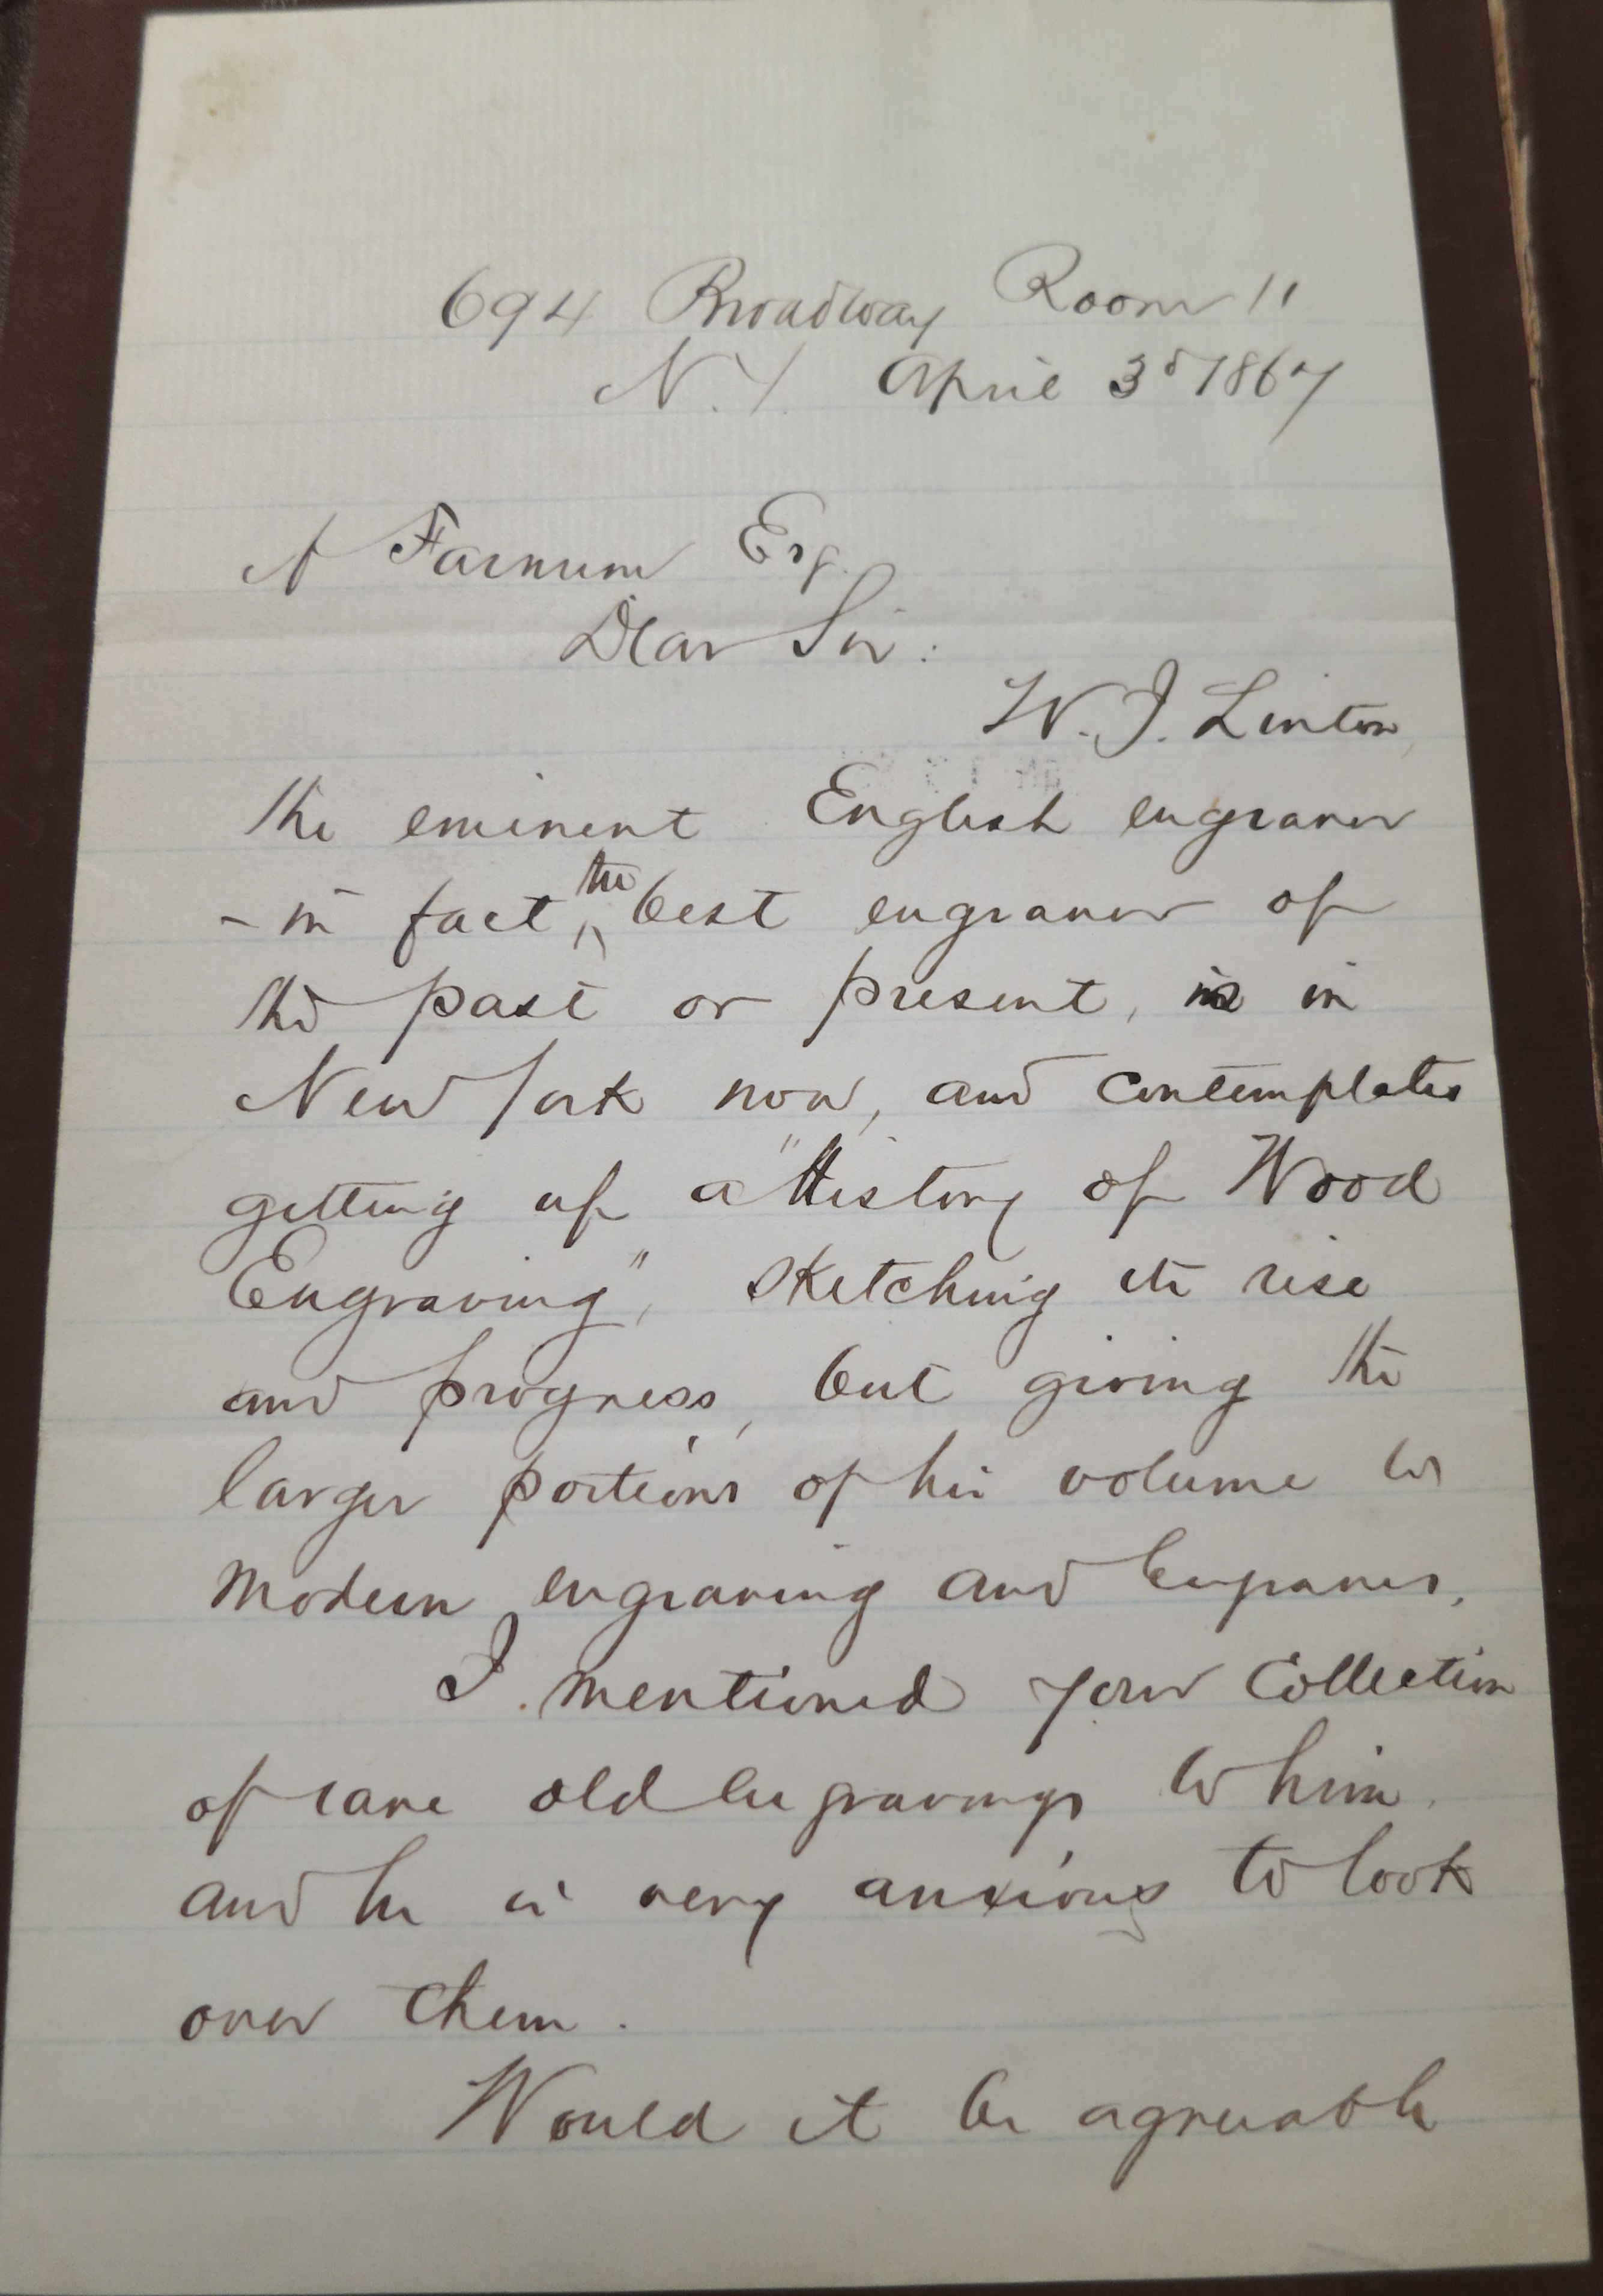 694 Broadway Room 11
N.Y. April 3d 1867
A Farnum Esq.
Dear Sir:
W. J. Linton,
the eminent English engraver
- in fact, the best engraver of
the past or present, is in
New York now, and contemplates
getting up a "History of Wood
Engraving", sketching its rise
and progress, but giving the
larger portions of his volume to
modern engraving and engravers.
I mentioned your collection
of rare old engravings to him.
and he is very anxious to look
over them.
Would it be agreeable